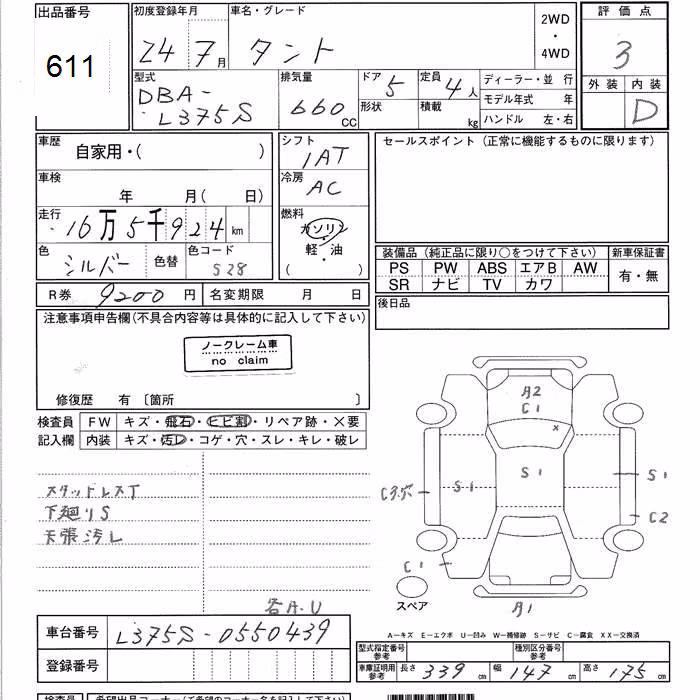 出品番号
611
初度登録年月
24 7月
車名・グレード
タント
2WD
・
4WD
評価点
3
外装 内装
D
型式
DBA-
L375S
排気量
660 CC
ドア
5
定員
4人
形状
積載
kg
ディーラー・並 行
モデル年式 年
ハンドル 左・右
車歴
自家用・( )
車検
年 月( 日)
走行
16万5千924 km
色
シルバー
色替
色コード
S28
シフト
IAT
冷房
AC
燃料
ガソリン
・
軽・油
( )
セールスポイント(正常に機能するものに限ります)
装備品(純正品に限り○をつけて下さい)
PS PW ABS エアB AW
SR ナビ TV カワ
新車保証書
有・無
後日品
R券 9200円 名変期限 月 日
注意事項申告欄(不具合内容等は具体的に記入して下さい)
ノークレーム車
no claim
修復歴 有 〔箇所 〕
検査員
記入欄
FW キズ・飛石・ヒビ割・リペア跡・×要
内装 キズ・汚レ・コゲ・穴・スレ・キレ・破レ
スタッドレスT
下廻りS
天張汚レ
各A.U
A2
C1
x
S1
S1
S1
C3.穴
C2
C1
A1
スペア
A-キズ E-エクボ U-凹み W-補修跡 S-サビ C-腐食 XX-交換済
車台番号
L375S-0550439
登録番号
型式指定番号
参考
種別区分番号
参考
車庫証明用
参考
長さ 339cm 幅 147cm 高さ 175cm
検査員
希望出品コーナー(ご希望のコーナー名を記入下さい)